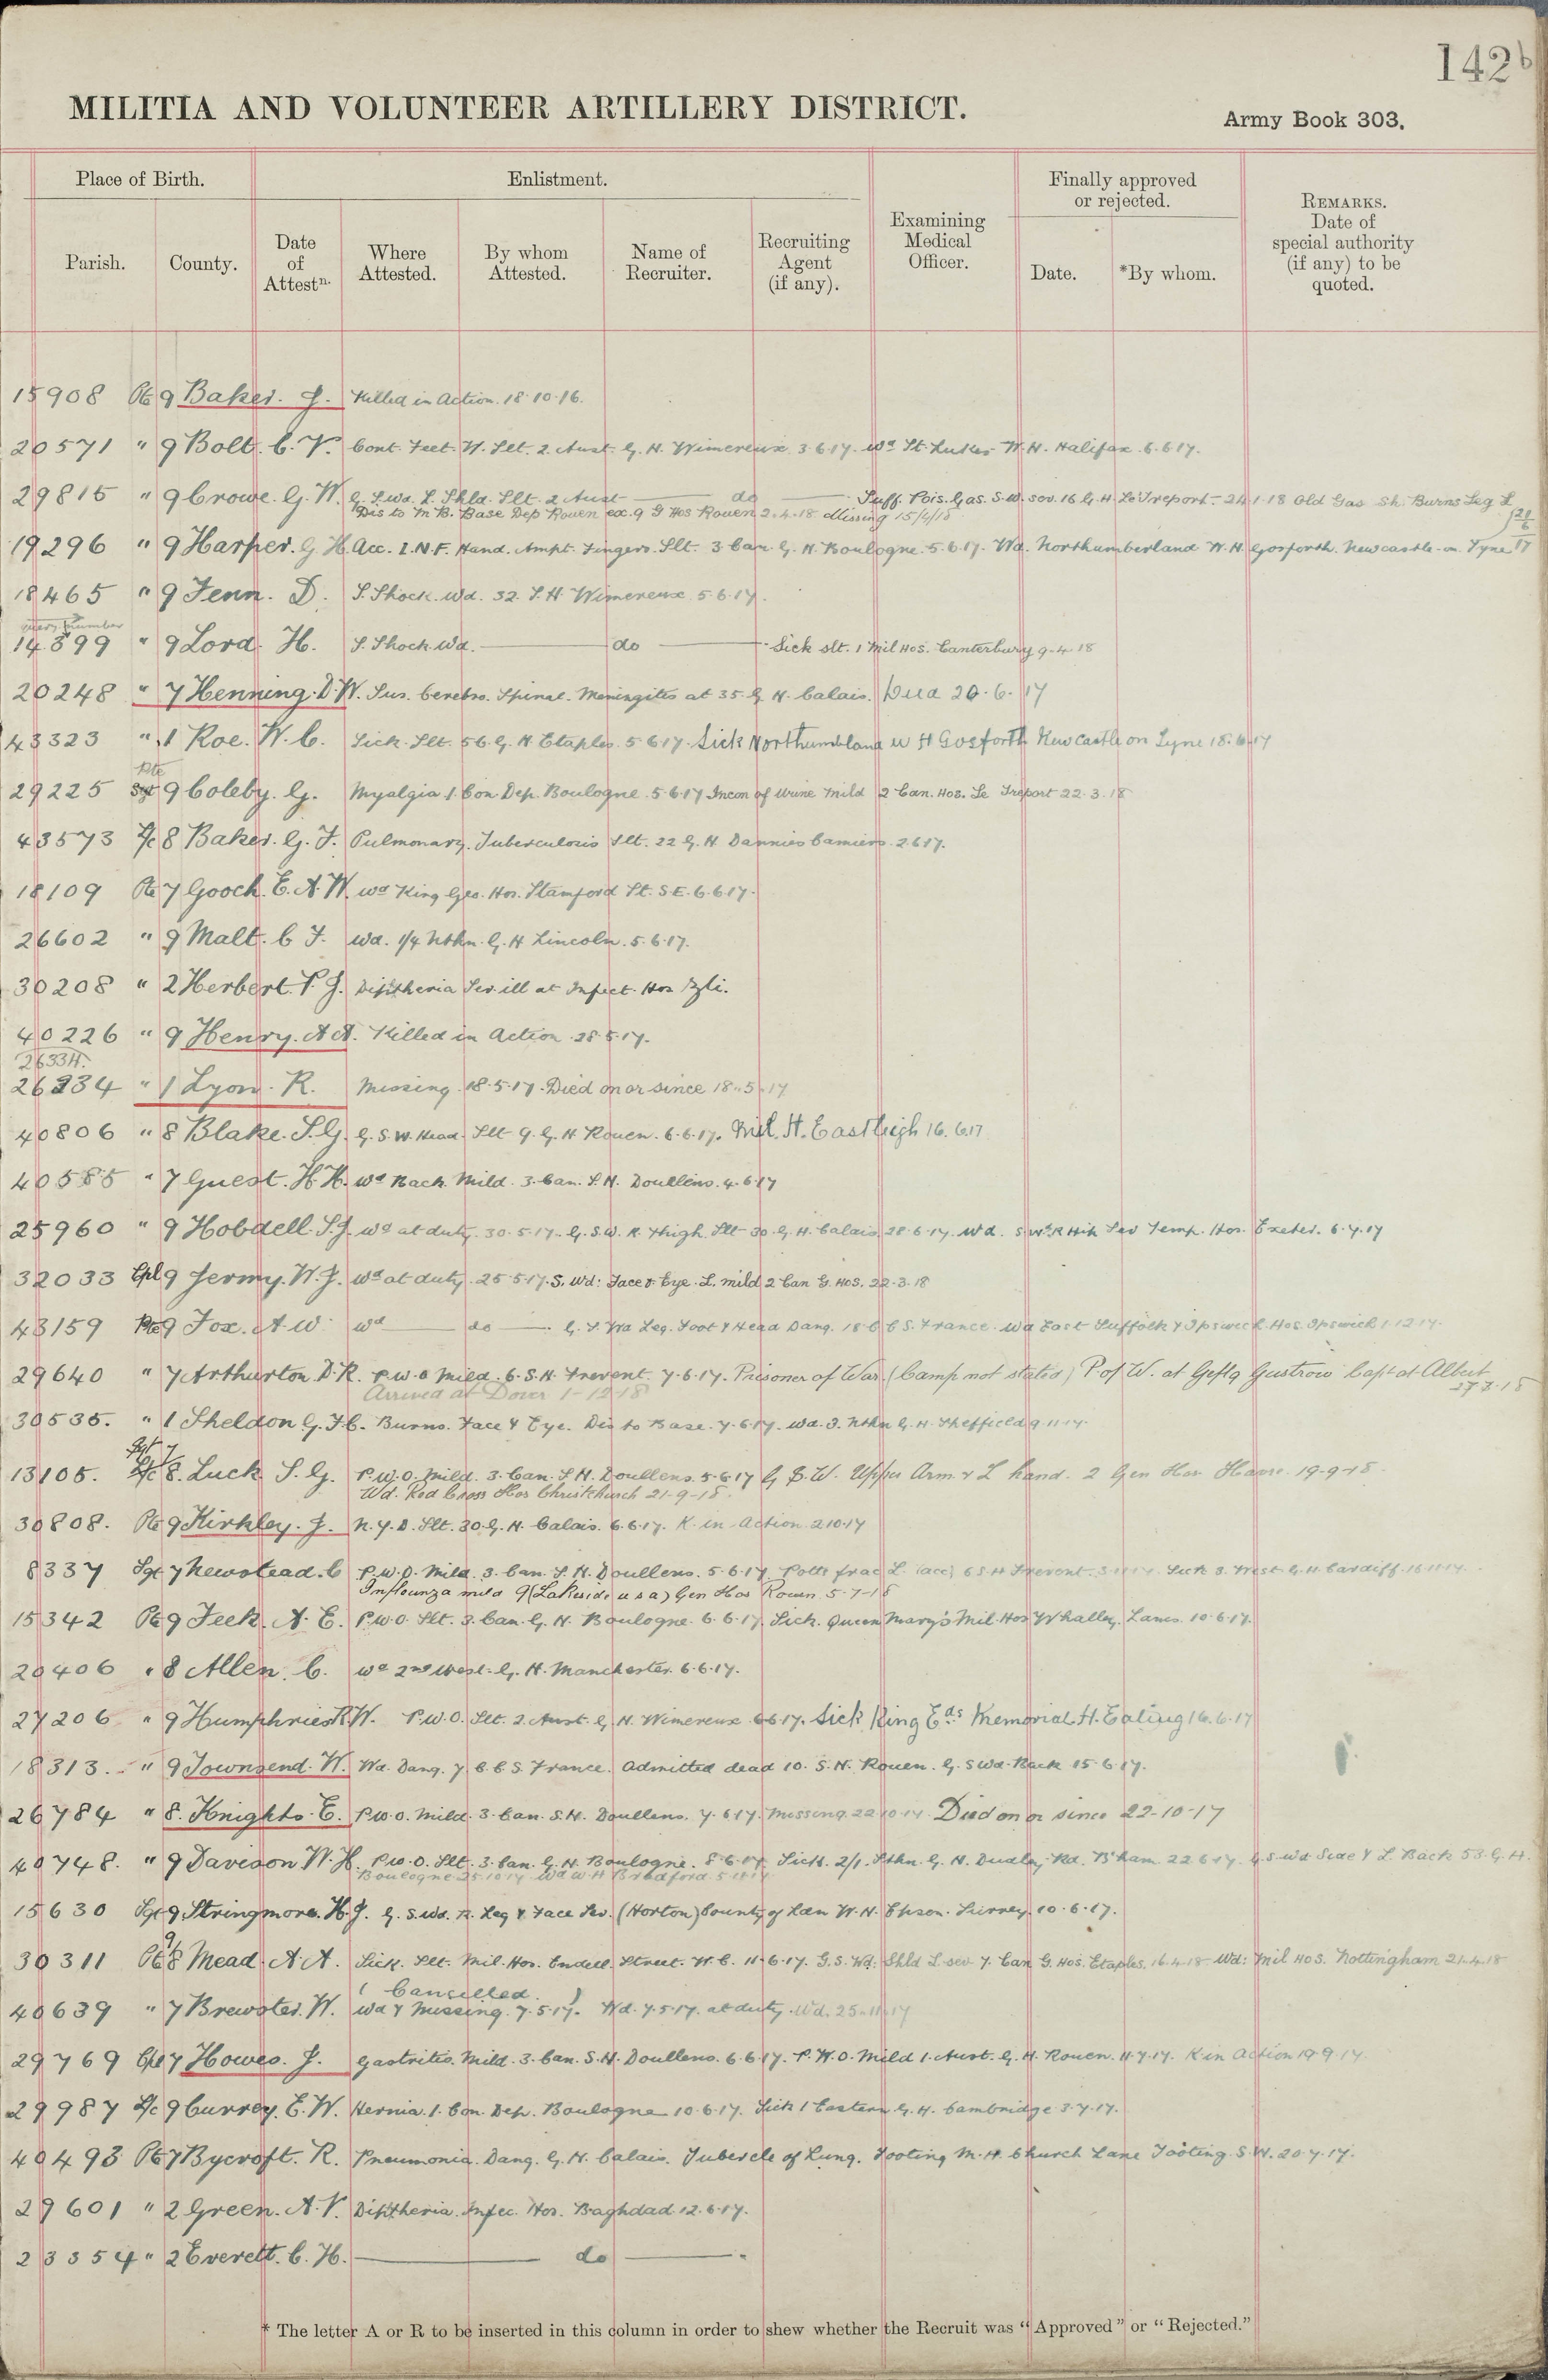 142b
MILITIA AND VOLUNTEER ARTILLERY DISTRICT.
Army Book 303.
Place of Birth.
Enlistment.
Finally approved
or rejected.
Parish.
County.
Date
of
Attestn.
Where
Attested.
By whom
Attested.
Name of
Recruiter.
Recruiting
Agent
(if any).
Examining
Medical
Officer.
Date.
*By whom.
REMARKS.
Date of
special authority
(if any) to be
quoted.
15908 Pte 9 Baker. J. Killed in Action. 18.10.16.
20571 " 9 Bolt. C. V. Cont. Feet. W. Slt. 2. Aust. G. H. Wimereux. 3.6.17. Wd St. Lukes W. H. Halifax. 6.6.17.
29815 " 9 Crowe. G. W. G. S. Wd. L. Shld. Slt. 2 Aust — do — Suff. Pois. Gas. S.W. sev. 16 G. H. Le Treport - 24.1.18 Old Gas Sh. Burns Leg L
Dis to M. B. Base Dep Rouen ex. 9 G Hos Rouen 2.4.18 Missing 15/4/18
19296 " 9 Harper. G. H. Acc. I.N.F. Hand. Ampt. Fingers. Slt. 3. Can. G. H. Boulogne. 5.6.17. Wd. Northumberland W. H. Gosforth. Newcastle. on. Tyne 21/6/17
18465 " 9 Fenn. D. S. Shock. Wd. 32. S. H. Wimereux. 5.6.17.
query number
14899 " 9 Lord. H. S. Shock. Wd. — do — Sick slt. 1 Mil Hos. Canterbury 9-4-18
20248 " 7 Henning. D. W. Sus. Cerebro. Spinal. Meningites at 35. G. H. Calais. Died 20.6.17
43323 " 1 Roe. W. C. Sick. Slt. 56. G. H. Etaples. 5.6.17. Sick Northumbland W H Gosforth Newcastle on Tyne 18.6.17
Pte
29225 Sgt 9 Coleby. G. Myalgia. 1. Con. Dep. Boulogne. 5.6.17 Incon of Urine Mild 2 Can. Hos. Le Treport 22.3.18
43573 L/c 8 Baker. G. F. Pulmonary. Tuberculosis Slt. 22 G. H. Dannies Camiers. 2.6.17.
18109 Pte 7 Gooch. E. A. W. Wd King Geo. Hos. Stamford St. S.E. 6.6.17.
26602 " 9 Malt. C F. Wd. 1/4 Nthn. G. H Lincoln. 5.6.17.
30208 " 2 Herbert. P. J. Diphtheria Sev. ill at Infect. Hos
40226 " 9 Henry. A. A. Killed in Action. 28.5.17.
26334.
26234 " 1 Lyon. R. Missing. 18.5.17. Died on or since 18.5.17
40806 " 8 Blake. S. G. G. S. W. Head. Slt 9. G. H Rouen. 6.6.17. Mil. H. Eastleigh 16.6.17
40585 " 7 Guest. H. H. Wd Back. Mild. 3. Can. S. H. Doullens. 4.6.17
25960 " 9 Hobdell. S. J. Wd at duty. 30.5.17. G. S. W. R. Thigh. Slt 30. G. H. Calais. 28.6.17. Wd. S Wd R Hip Sev Temp. Hos. Exeter. 6.7.17
32033 Cpl 9 Jermy. W. J. Wd at duty. 25.5.17. S. Wd: Face & Eye. L. mild 2 Can G. Hos. 22.3.18
43159 Pte 9 Fox. A. W. Wd — do — G. S. Wd Leg. Foot & Head Dang. 18.6 C S. France. Wd East Suffolk & Ipswich. Hos. Ipswich 1.12.17.
29640 " 7 Arthurton. D. R. P. W. O Mild. 6. S. H. Frevent. 7.6.17. Prisoner of War (Camp not stated) P of W. at Geflg Gustrow Capt at Albert
Arrived at Dover 1-12-18 27.3.18
30535. " 1 Sheldon. G. F. C. Burns. Face & Eye. Dis to Base. 7.6.17. Wd. 3. Nthn G. H. Sheffield 9.11.17.
Sgt 7
13105. L/c 8. Luck S. G. P. W. O. Mild. 3. Can. S H. Doullens. 5.6.17 G S. W. Upper Arm & L hand. 2 Gen Hos Havre. 19-9-18.
Wd. Red Cross Hos Christchurch 21-9-18.
30808. Pte 9 Kirkley. J. N. Y. D. Slt. 30. G. H. Calais. 6.6.17. K. in Action 2.10.17
8337 Sgt 7 Newstead. C P. W. O. Mild. 3. Can. S. H. Doullens. 5.6.17 Potts frac L (acc) 6 S. H Frevent. 5.11.17. Sick 3. West. G. H. Cardiff. 16.11.17.
Influenza mild 9 (Lakeside u s a) Gen Hos Rouen 5-7-18
15342 Pte 9 Feek. A. E. P. W. O. Slt. 3. Can. G. H. Boulogne. 6.6.17. Sick. Queen Mary's Mil. Hos Whalley. Lancs. 10.6.17.
20406 " 8 Allen. C. Wd 2nd West. G. H. Manchester. 6.6.17.
27206 " 9 Humphries R. W. P. W. O. Slt. 2. Aust. G H. Wimereux 6.6.17. Sick King Eds Memorial H. Ealing 16.6.17
18313. " 9 Townsend. W. Wd. Dang. 7 C. C. S. France. Admitted dead 10. S. H. Rouen. G. S Wd. Back 15.6.17.
26784 " 8. Knights. E. P. W. O. Mild. 3. Can. S. H. Doullens. 7.6.17. Missing. 22.10.17. Died on or since 22-10-17
40748. " 9 Davison W. H. P. W. O. Slt. 3. Can. G. H. Boulogne. 8.6.17. Sick. 2/1. Sthn. G. H. Dudley Rd. B'ham. 22.6.17. G. S. Wd Side & L. Back 53. G. H.
Boulogne. 25.10.17. Wd W H Bradford 5.11.17
15630 Sgt 9 Stringmore. H. J. G. S. Wd. R. Leg & Face Sev. (Horton) County of Lon W. H. Epsom. Surrey. 10.6.17.
30311 Pte 9/8 Mead. A. A. Sick. Slt. Mil. Hos. Endell. Street. W. C. 11.6.17. G. S. Wd. Shld L. sev 7. Can G. Hos. Etaples. 16.4.18 Wd: Mil Hos. Nottingham 21.4.18
( Cancelled. )
40639 " 7 Brewster. W. Wd & Missing. 7.5.17. Wd. 7.5.17. at duty. Wd. 25.11.17
29769 Cpl 7 Howes. J. Gastritis. Mild. 3. Can. S. H. Doullens. 6.6.17. P. W. O. Mild 1. Aust. G. H. Rouen. 11.7.17. K in Action 19.9.17.
29987 L/c 9 Currey. E. W. Hernia. 1. Con. Dep. Boulogne 10.6.17. Sick 1 Eastern G. H. Cambridge 3.7.17.
40493 Pte 7 Bycroft. R. Pneumonia. Dang. G. H. Calais. Tubercle of Lung. Tooting M. H. Church Lane Tooting. S. W. 20.7.17.
29601 " 2 Green. A. V. Diphtheria. Infec. Hos. Baghdad. 12.6.17.
23354 " 2 Everett. C. H. — do —
* The letter A or R to be inserted in this column in order to shew whether the Recruit was "Approved" or "Rejected."